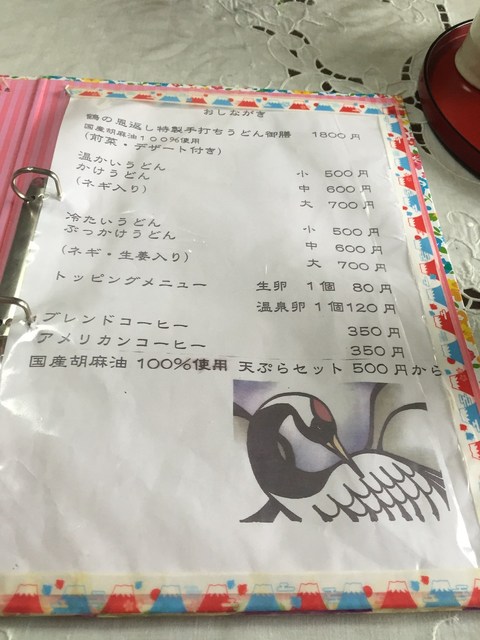 おしながき
鶴の恩返し特製手打ちうどん御膳 1800円
国産胡麻油100%使用
(前菜・デザート付き)
温かいうどん
かけうどん 小 500円
(ネギ入り) 中 600円
大 700円
冷たいうどん
ぶっかけうどん 小 500円
中 600円
(ネギ・生姜入り) 大 700円
トッピングメニュー 生卵 1個 80円
温泉卵 1個120円
ブレンドコーヒー 350円
アメリカンコーヒー 350円
国産胡麻油 100%使用 天ぷらセット 500円から